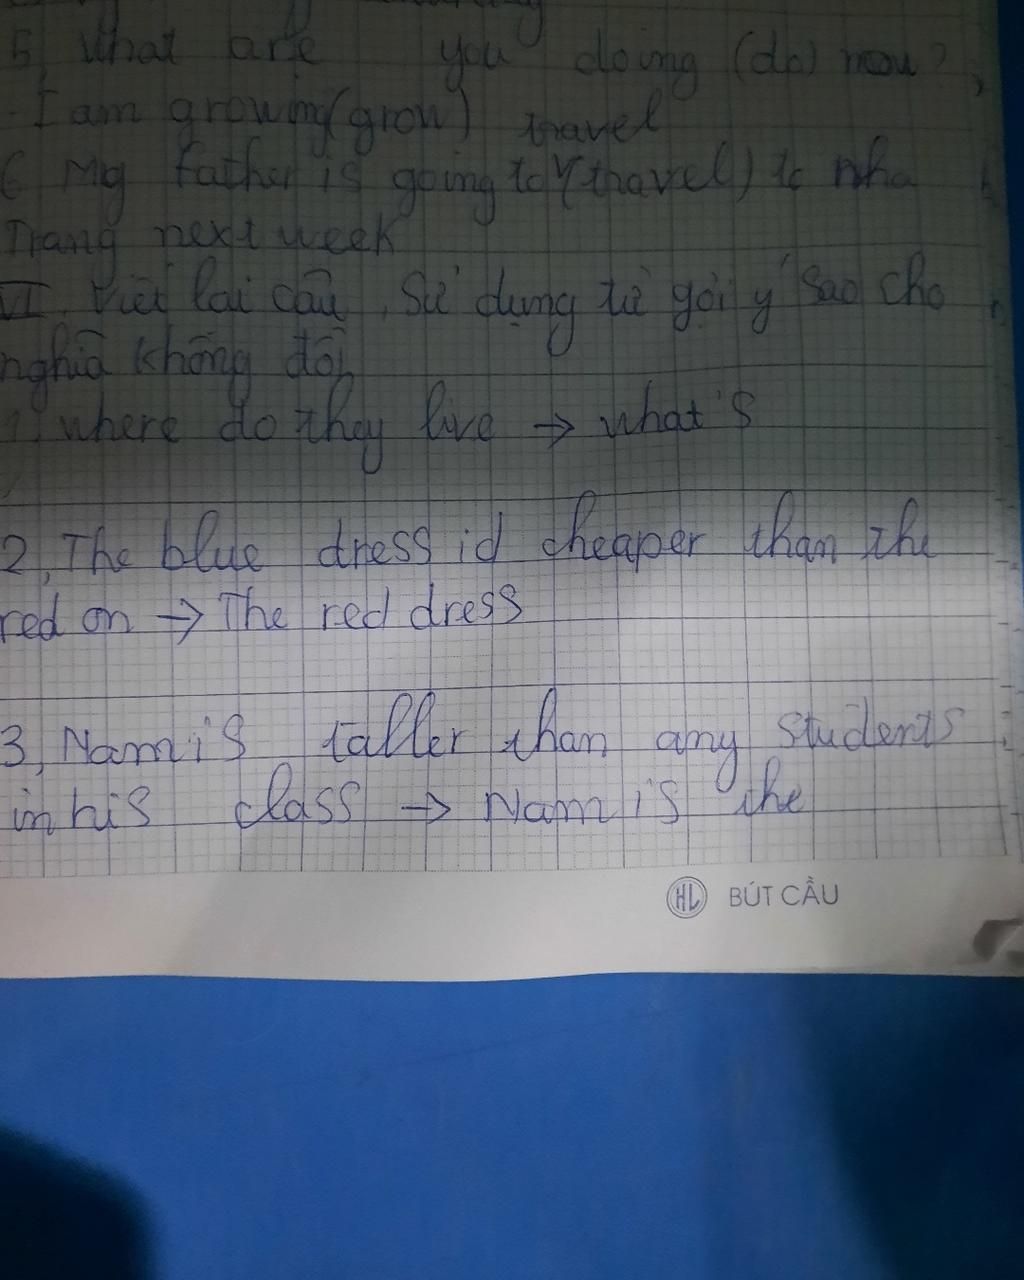 5, What are you doing (do) now?
I am growing (grow) travel
6 My father is going to (travel) to nha
Trang next week
VI. Viết lai câu, Sử dụng từ gợi ý sao cho
nghiã không đổi
1, where do they live → what's
2, The blue dress id cheaper than the
red on → The red dress
3, Nam is taller than any students
in his class → Nam is the
HL BÚT CẦU